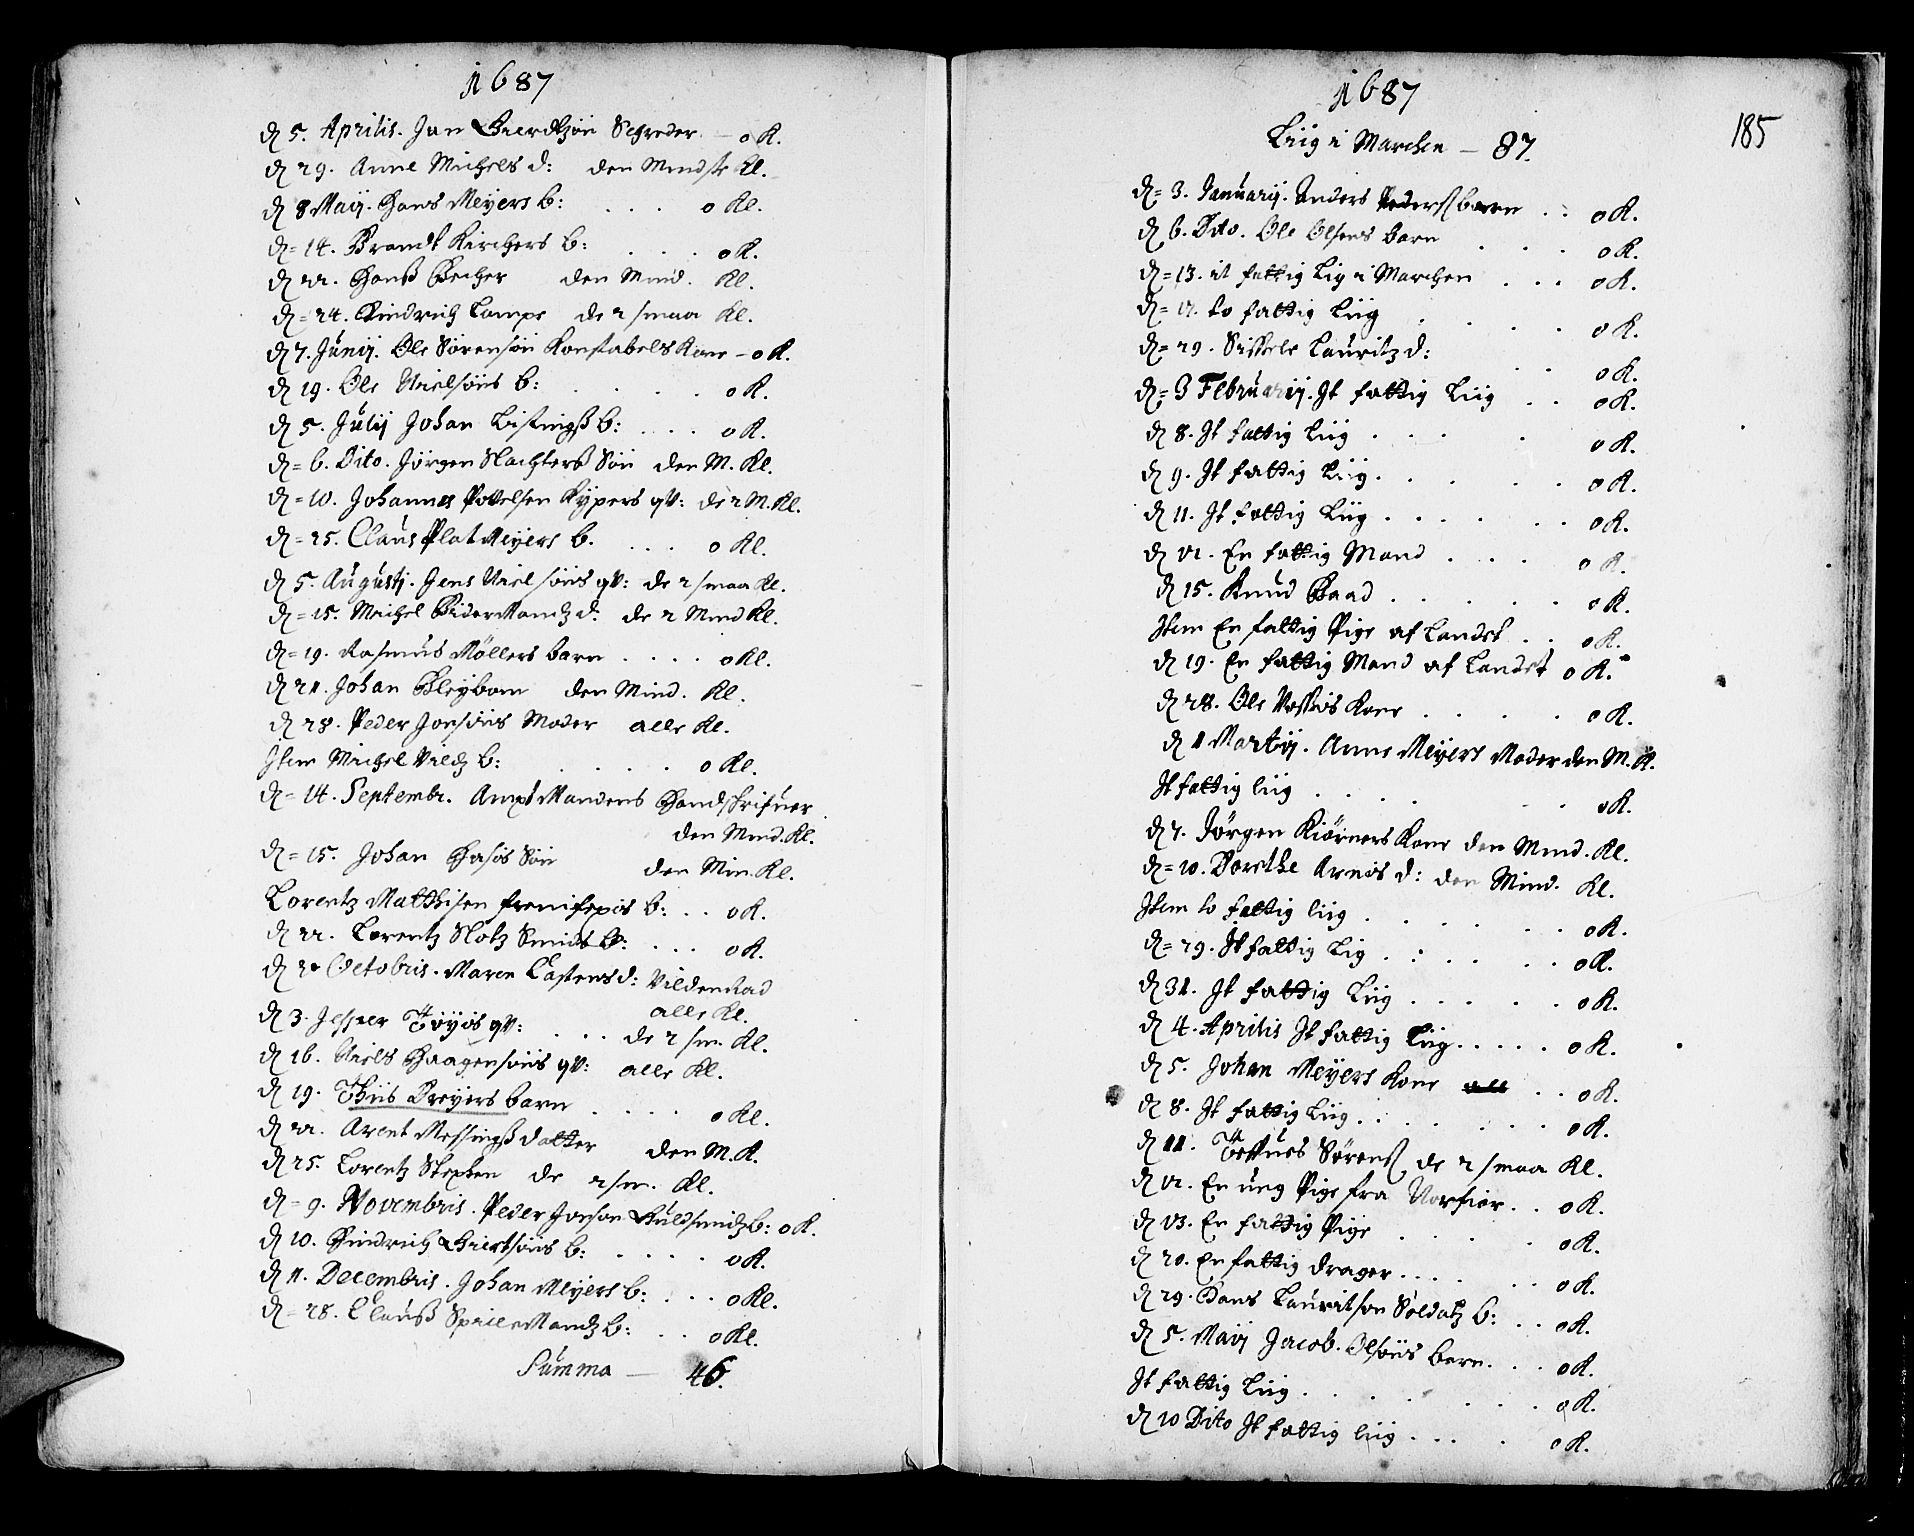 1687
d 5. Aprilis. Jan Gierdtzøn Schreder — o K.
d 29. Anne Michels d: den Mindste Kl.
d 8 Maij. Hans Meyers b: . . . o Kl.
d= 14. Brandt Kirchers b: . . . o K.
d 22. Hans Becher den Mind. Kl.
d= 24. Hindrich Lampe de 2 smaa Kl.
d 7. Junij. Ole Sørensøn Konstabels Kone - o K.
d 19. Ole Nielsøns b: . . . . o K.
d 5. Julij Johan Listingß b: . . . o K.
d= 6. Dito. Jørgen Slachters Søn den M. Kl.
d= 10. Johannes Povelsen Kypers qv: de 2 M. Kl.
d= 25. Claus Plat Meyers b. . . . o Kl.
d 5. Augustj. Jens Nielsøns qv: de 2 smaa Kl.
d= 15. Michel Bidermandz d: de 2 Mind Kl.
d= 19. Rasmus Møllers barn . . . . o Kl.
d 21. Johan Bleybom den Mind. Kl.
d 28. Peder Jonsøns Moder alle Kl.
Item Michel Vildz b: . . . . o Kl.
d= 14. Septembr. Ampt Mandens Handskrifuer
den Mind. Kl.
d= 15. Johan Hasis Søn den Min. Kl.
Lorentz Matthisen b: . . o K.
d 22. Lorentz Slotz Smids b: . . . o K.
d 2 Octobris. Maren Castens d: Vildenrad
alle Kl.
d 3. Jesper Tøyøs qv: . . . de 2 sm. Kl.
d 16. Niels Haagensøns qv: alle Kl.
d 19. Thiis Dreyers barn . . . . o Kl.
d 22. Arent Messingß datter den M. K.
d 25. Lorentz Stephen de 2 sm. Kl.
d= 9. Novembris. Peder Jonson Guldsmidz b: o K.
d 10. Hindrich Giertsøns b: . . . . o K.
d 11. Decembris. Johan Meyers b: . . . o Kl.
d= 28. Clauß Spillemandz b: . . o Kl.
Summa — 46.
1687
185
Liig i Marchen — 87.
d= 3. Januarij. Anders Pederß barn . . o K.
d 6. Dito. Ole Olsens barn . . . o K.
d= 13. it fattig Lig i Marchen . . . o K.
d= 17. to fattig Liig . . . . o K.
d= 29. Sissele Lauritz d: . . o K.
d= 3 Februarij. It fattig Liig . . o K.
d 8. It fattig Liig . . . . o K.
d 9. It fattig Liig . . . . o K.
d 11. It fattig Liig . . . . . o K.
d 12. En fattig Mand . . . . o K.
d 15. Knud Baad . . . . . o K.
Item En fattig Pige af Landet . . o K.
d 19. En fattig Mand af Landet o K.
d 28. Ole Kone . . . . o K.
d 1 Martij. Anne Meyers Moder den M. K.
It fattig liig . . . . . . o K.
d 7. Jørgen Kiørners Kone den Mind. Kl.
d= 10. Dorethe Arens d: den Mind. Kl.
Item to fattig liig . . . . . . o K.
d= 29. It fattig Lig . : . . . o K.
d 31. It fattig Liig . . . . . o K.
d 4. Aprilis It fattig Liig . . . . . o K.
d 5. Johan Meyers Kone . . o K.
d 8. It fattig Liig . . . . . . o K.
d 11. Sørenß de 2 smaa Kl.
d 12. En ung Pige fra Norfiør . . o K.
d 13. En fattig Pige . . . . o K.
d 20. En fattig drager . . . . . . o K.
d 29. Hans Lauritson Soldatz b: . . o K.
d 5. Maij Jacob. Olsøns Barn. . . o K.
It fattig Liig . . . . . . o K.
d 10 Dito It fattig liig . . . . o K.